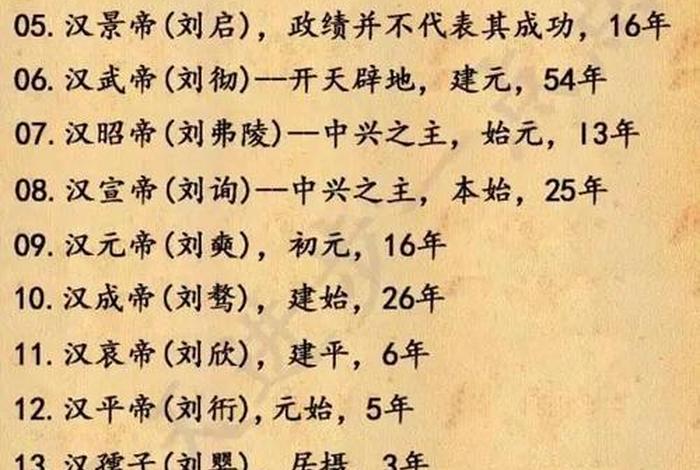 05. 汉景帝(刘启)，政绩并不代表其成功，16年
06. 汉武帝(刘彻)——开天辟地，建元，54年
07. 汉昭帝(刘弗陵)——中兴之主，始元，13年
08. 汉宣帝(刘询)——中兴之主，本始，25年
09. 汉元帝(刘奭)，初元，16年
10. 汉成帝(刘骜)，建始，26年
11. 汉哀帝(刘欣)，建平，6年
12. 汉平帝(刘衎),元始，5年
13. 汉孺子(刘婴)，居摄，3年